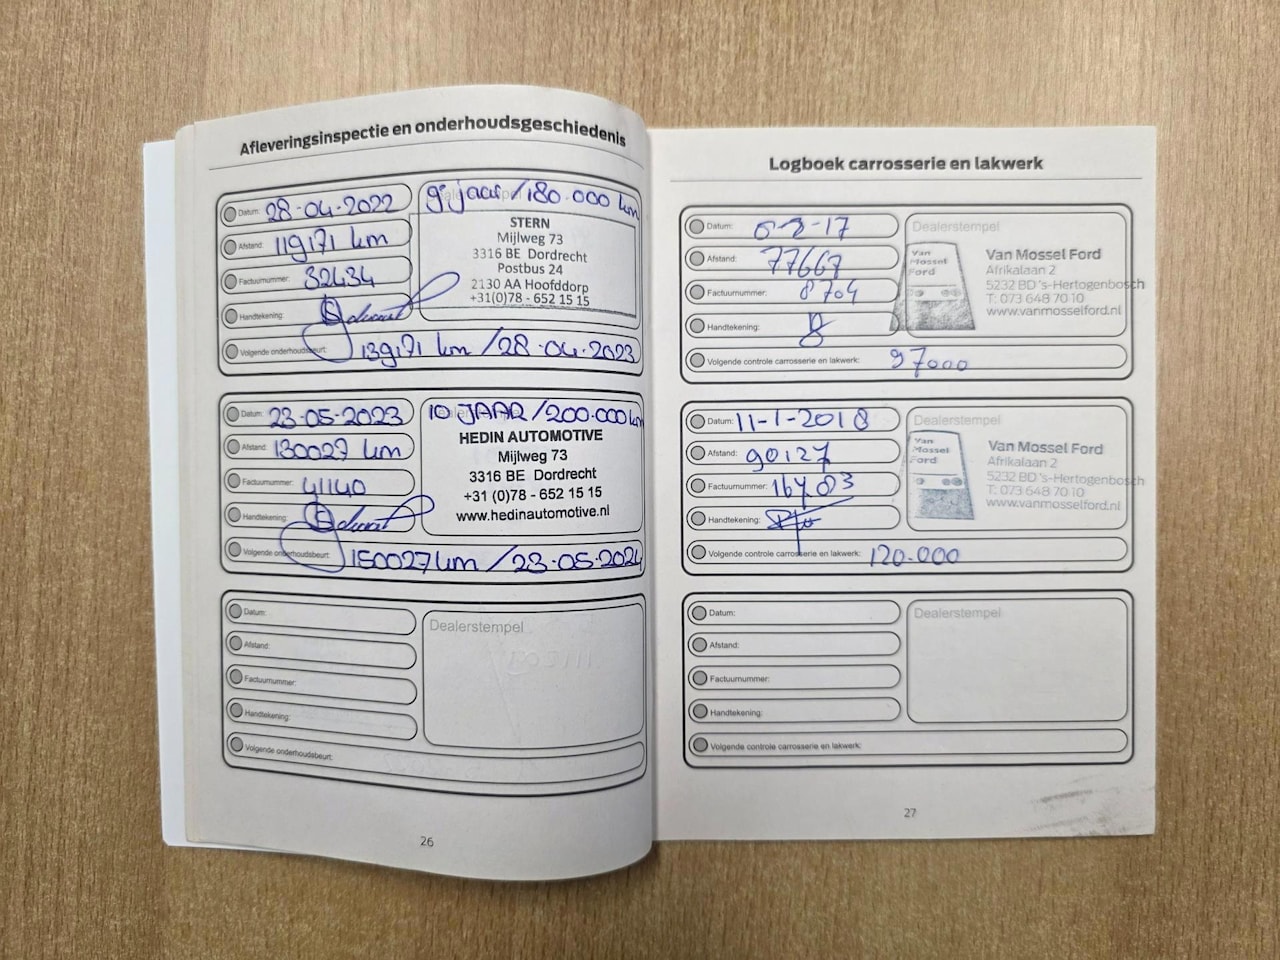 Afleveringsinspectie en onderhoudsgeschiedenis
Datum: 28-04-2022
9e jaar / 180.000 km
Afstand: 119171 km
Factuurnummer: 32434
Handtekening:
STERN
Mijlweg 73
3316 BE Dordrecht
Postbus 24
2130 AA Hoofddorp
+31(0)78 - 652 15 15
Volgende onderhoudsbeurt: 139171 km / 28-04-2023
Datum: 23-05-2023
10 JAAR / 200.000 km
Afstand: 130027 km
Factuurnummer: 41140
Handtekening:
HEDIN AUTOMOTIVE
Mijlweg 73
3316 BE Dordrecht
+31 (0)78 - 652 15 15
www.hedinautomotive.nl
Volgende onderhoudsbeurt: 150027 km / 23-05-2024
Datum:
Afstand:
Factuurnummer:
Handtekening:
Dealerstempel
Volgende onderhoudsbeurt:
26
Logboek carrosserie en lakwerk
Datum: -17
Afstand: 77667
Factuurnummer: 8704
Handtekening:
Dealerstempel
Van
Mossel
Ford
Van Mossel Ford
Afrikalaan 2
5232 BD 's-Hertogenbosch
T: 073 648 70 10
www.vanmosselford.nl
Volgende controle carrosserie en lakwerk: 97000
Datum: 11-1-2018
Afstand: 90127
Factuurnummer:
Handtekening:
Dealerstempel
Van
Mossel
Ford
Van Mossel Ford
Afrikalaan 2
5232 BD 's-Hertogenbosch
T: 073 648 70 10
www.vanmosselford.nl
Volgende controle carrosserie en lakwerk: 120.000
Datum:
Afstand:
Factuurnummer:
Handtekening:
Dealerstempel
Volgende controle carrosserie en lakwerk:
27